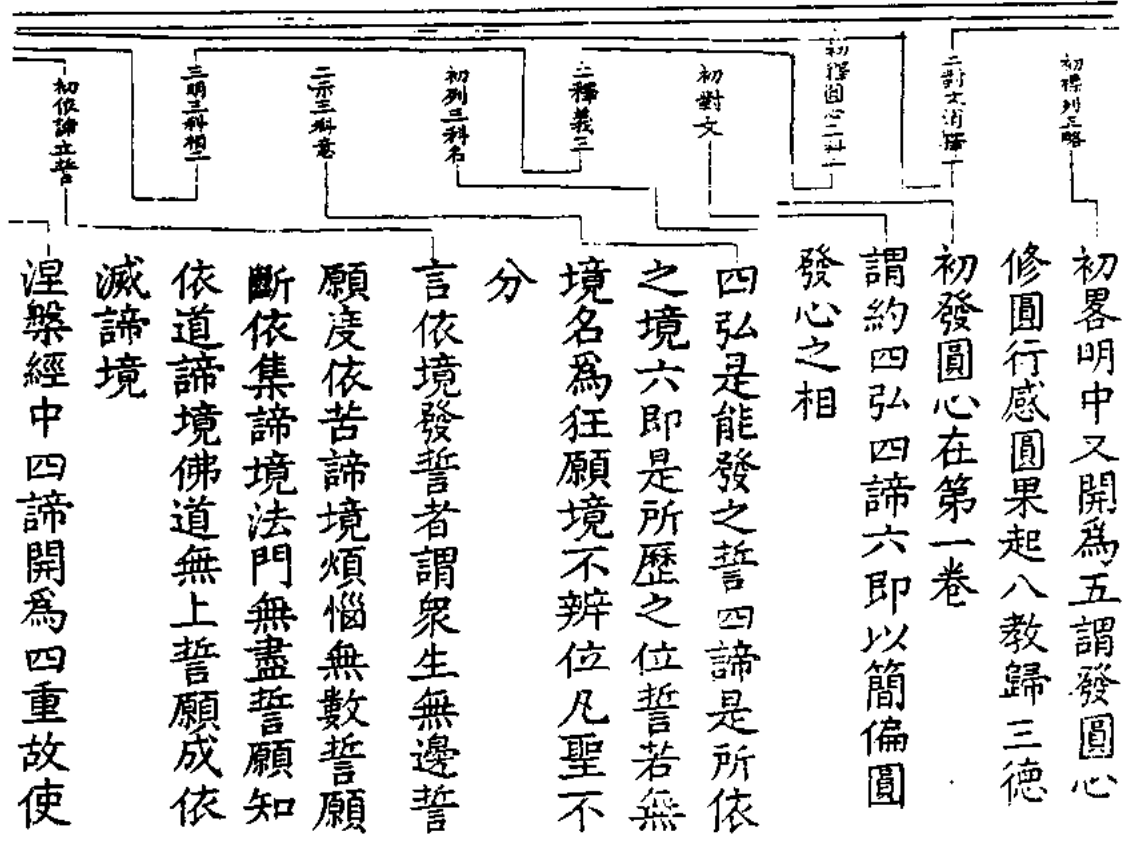 初標列五略
二對文消釋二
初釋圓心二科二
初對文
二釋義三
初列三科名
二示三科意
三明三科相二
初依諦立誓
初畧明中又開爲五謂發圓心
修圓行感圓果起八教歸三德
初發圓心在第一卷
謂約四弘四諦六即以簡偏圓
發心之相
四弘是能發之誓四諦是所依
之境六即是所歷之位誓若無
境名爲狂願境不辨位凡聖不
分
言依境發誓者謂衆生無邊誓
願度依苦諦境煩惱無數誓願
斷依集諦境法門無盡誓願知
依道諦境佛道無上誓願成依
滅諦境
涅槃經中四諦開爲四重故使